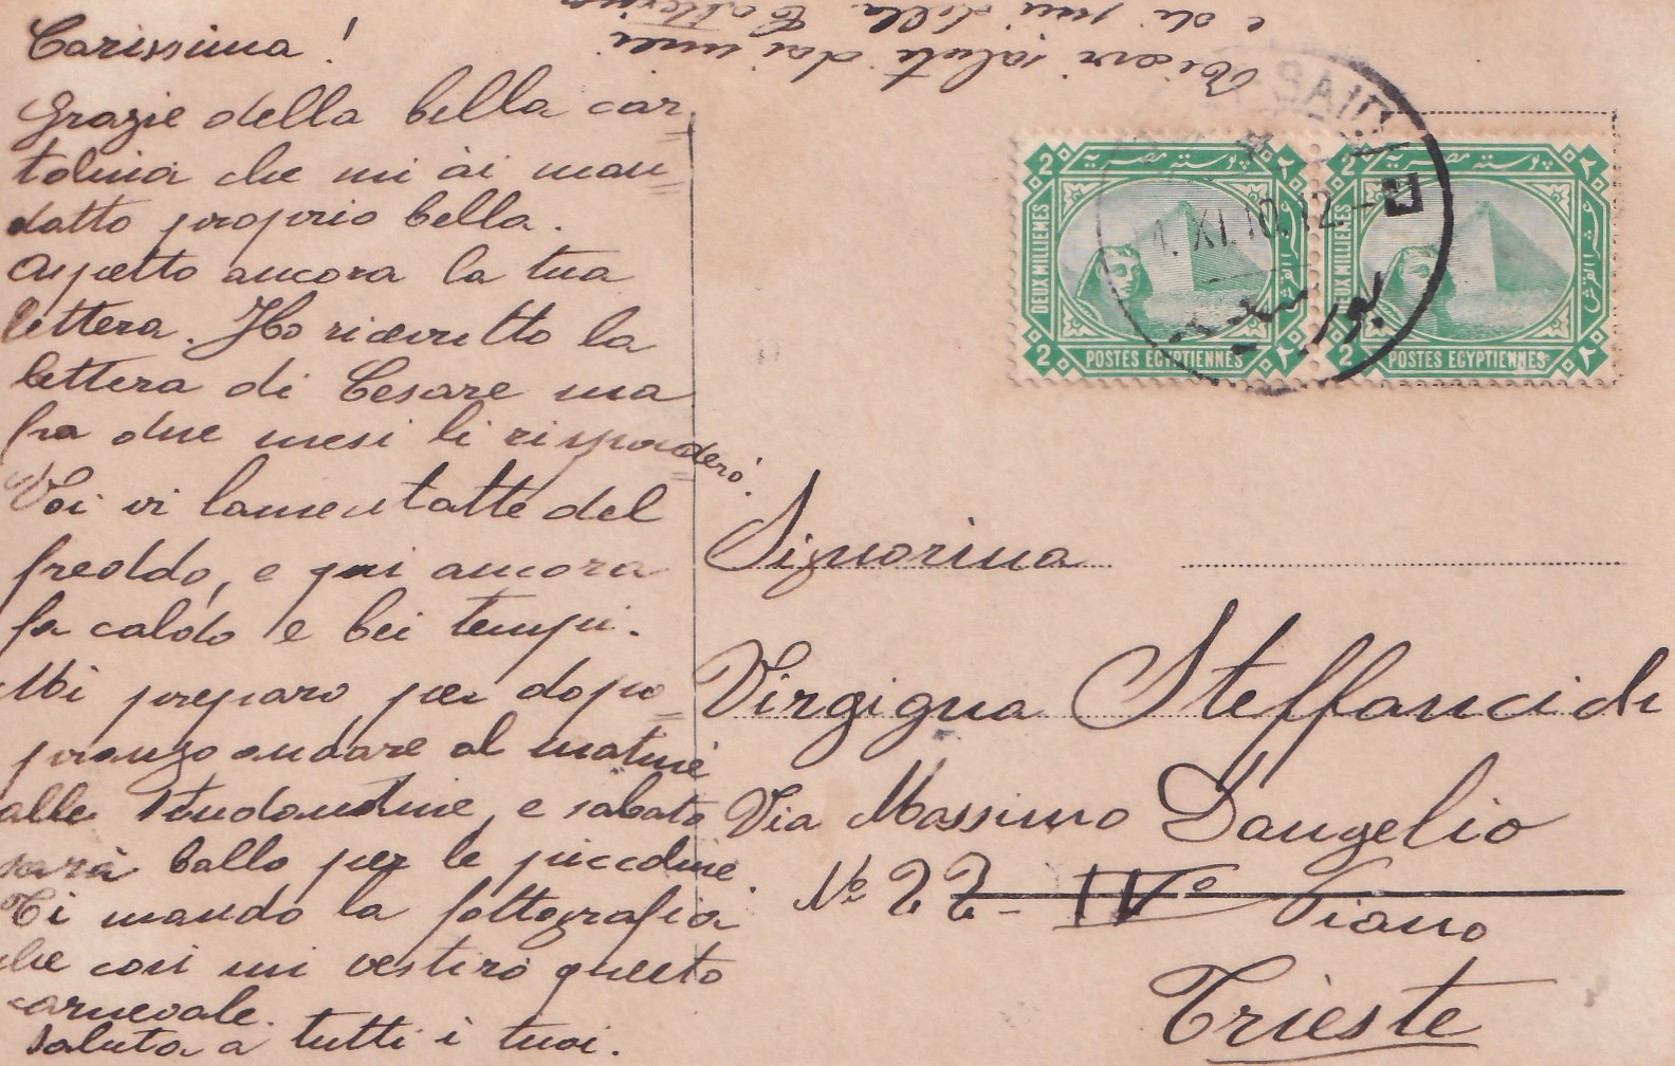 Carissima!
Grazie della bella car
tolina che mi ài man
datto proprio bella.
Aspetto ancora la tua
lettera. Ho ricevutto la
lettera di Cesare ma
fra due mesi li risponderò.
Voi vi lamentatte del
freddo, e qui ancora
fa caldo e bei tempi.
Mi preparo per dopo
pranzo andare al matiné
alle, e sabato
sarà ballo per le piccoline.
Ti mando la fottografia
che cosi mi vestirò questo
carnevale.
Saluta a tutti i tuoi.
Ricevi saluti dai miei
e di più della
SAID
1. XI. 10. 12
بور سعيد
2
بوسته مصرية
٢
DEUX MILLIEMES
2
POSTES EGYPTIENNES
٢
2
بوسته مصرية
٢
DEUX MILLIEMES
2
POSTES EGYPTIENNES
٢
Signorina
Virgigna Steffancich
Via Massimo Dangelio
No 22 - IVo Piano
Trieste